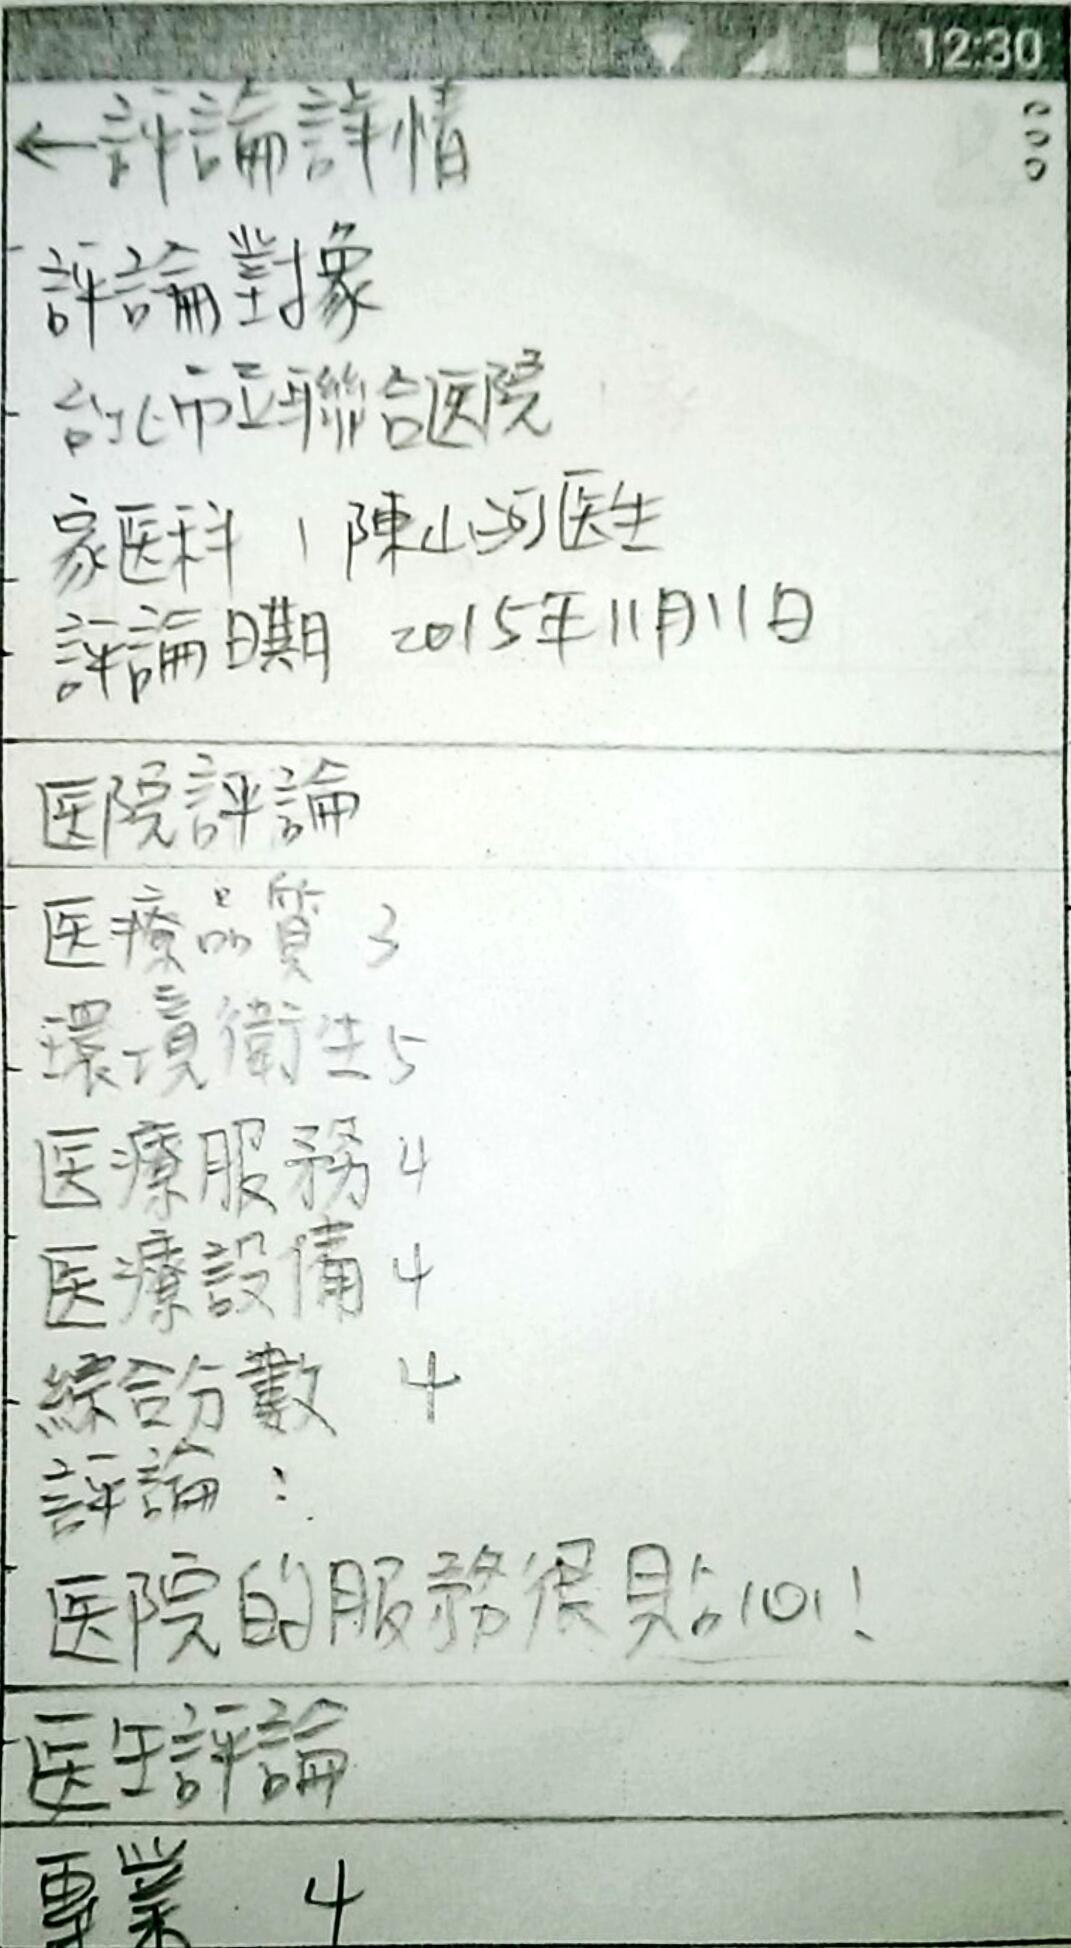 12:30
←評論詳情
評論對象
台北市立聯合医院
家医科 | 陳山河医生
評論日期 2015年11月11日
医院評論
医療品質 3
環境衛生5
医療服務 4
医療設備 4
綜合分數 4
評論：
医院的服務很貼心！
医生評論
專業 4